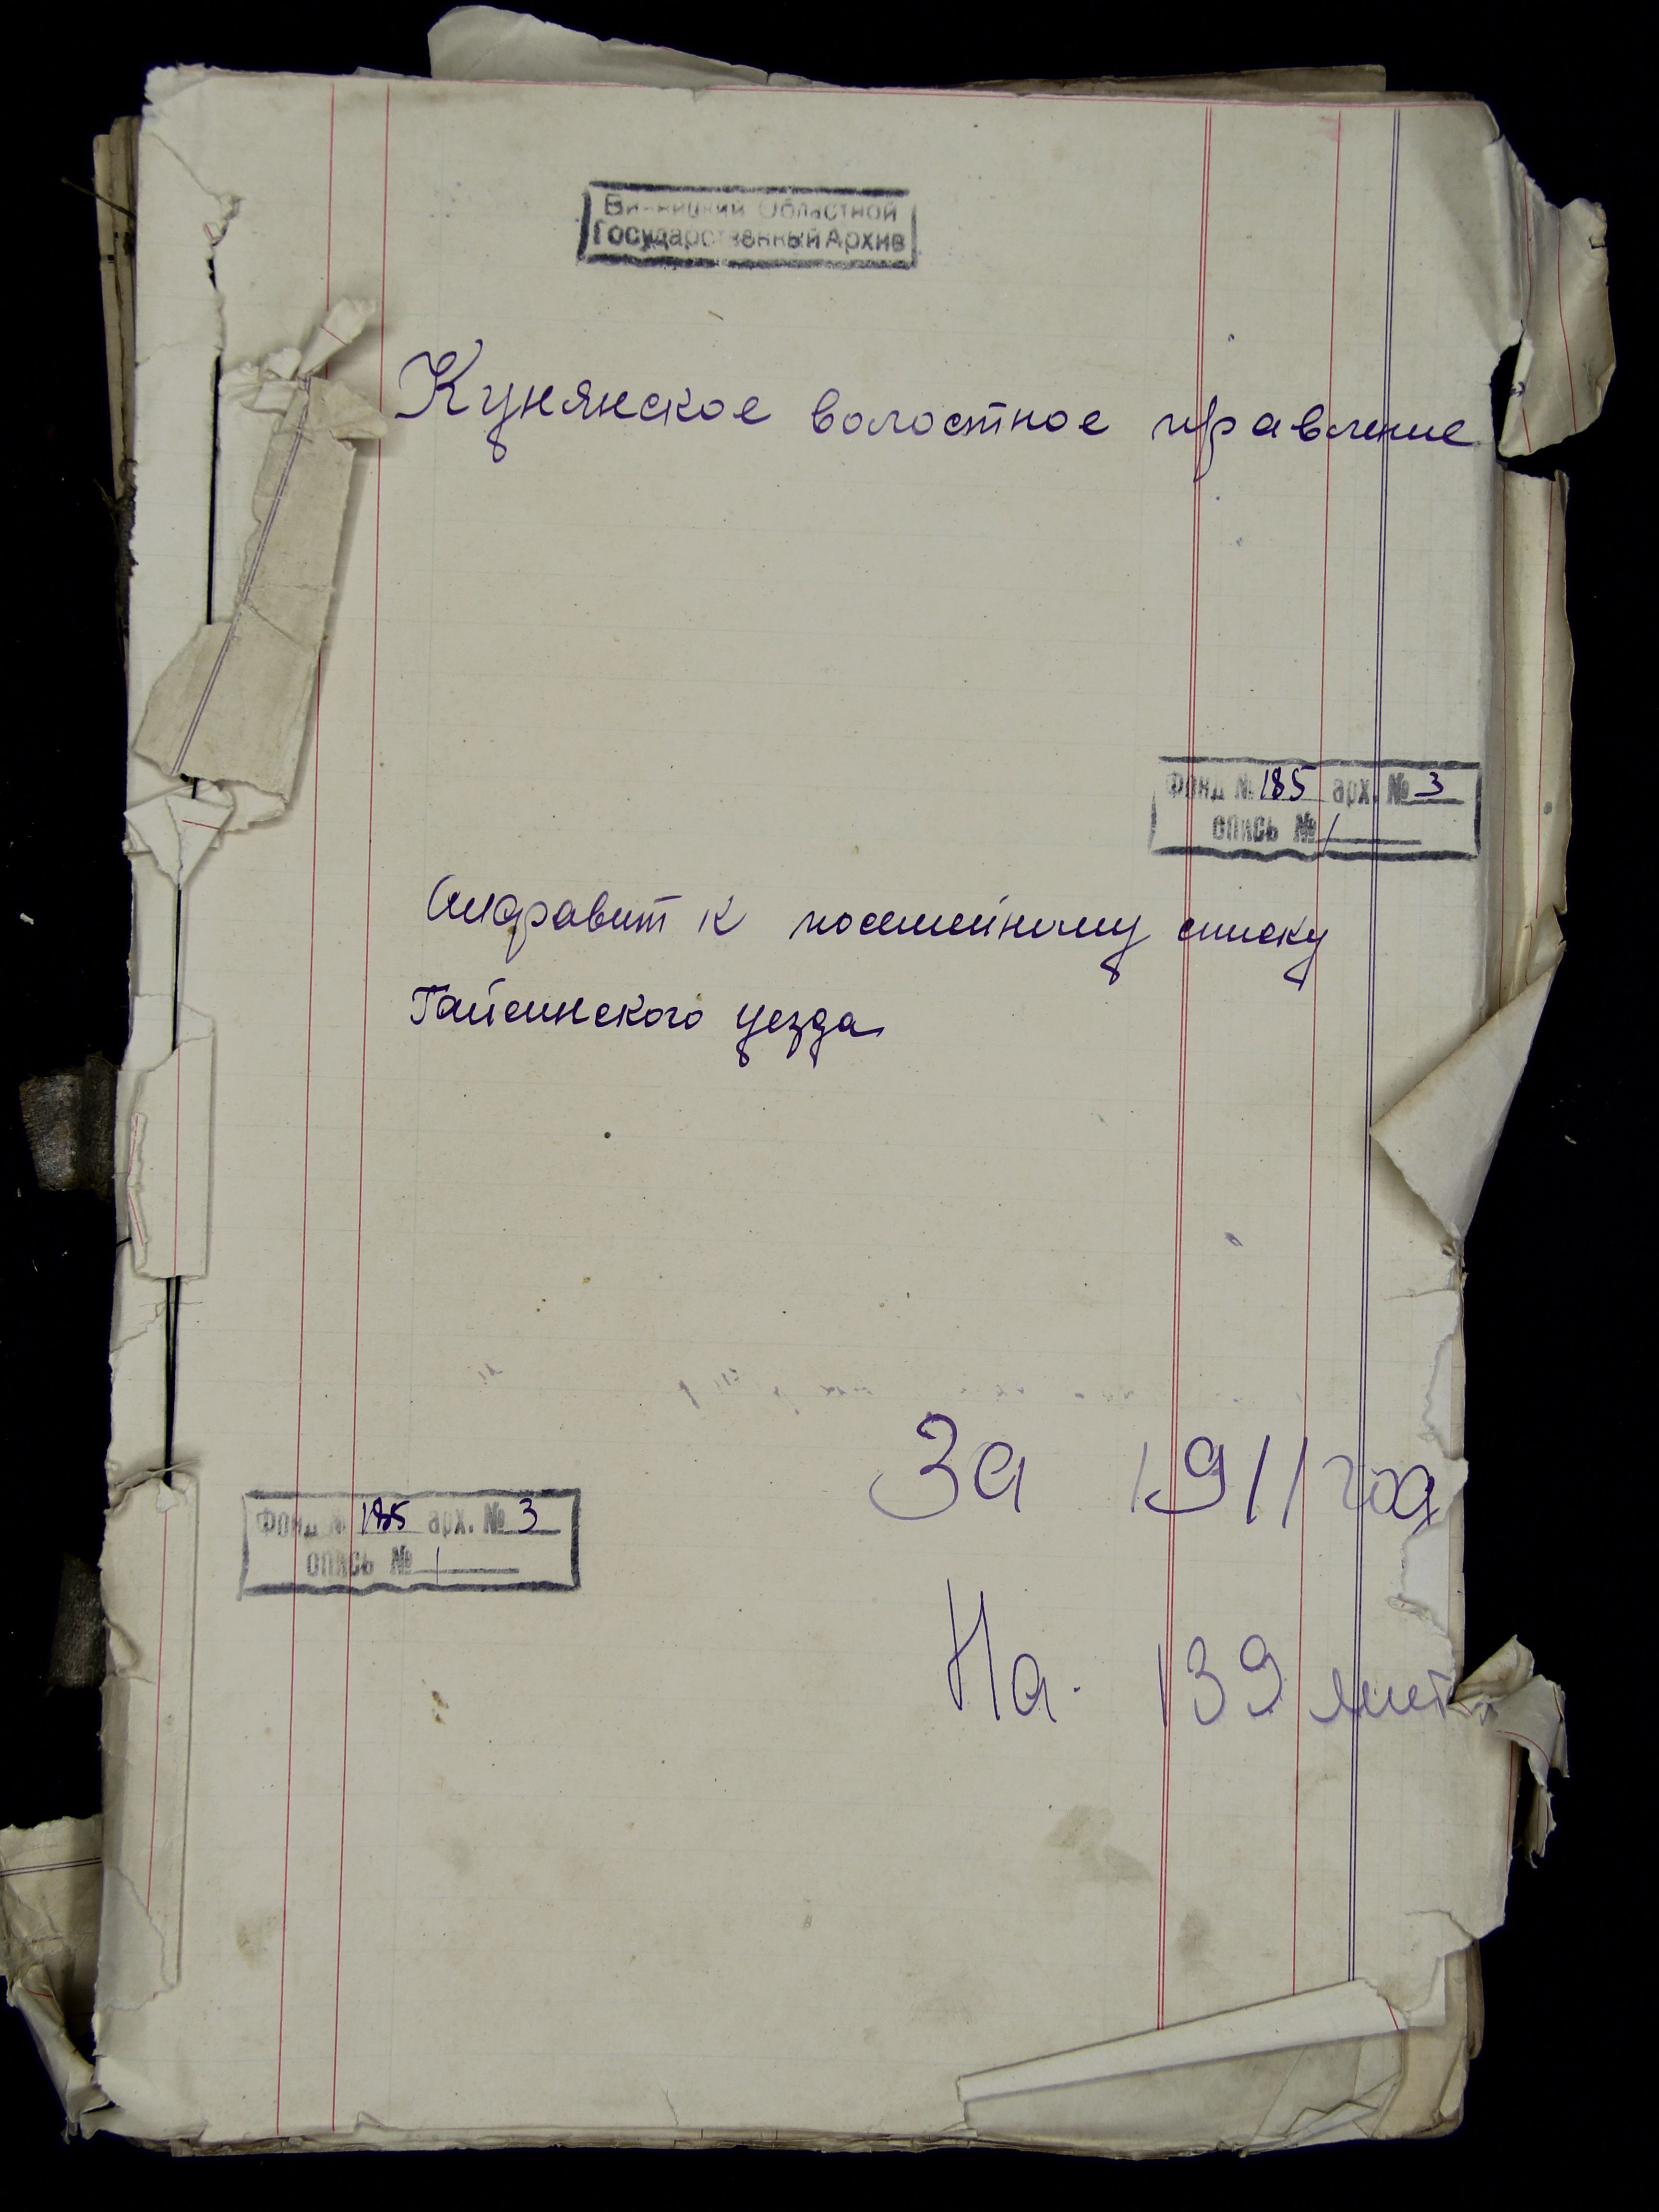 Винницкий Областной
Государственный Архив
Кунянское волостное правление
Фонд № 185 арх. № 3
опись № 1
Алфавит к посемейному списку
Гайсинского уезда
За 1911 год
Фонд № 185 арх. № 3
опись № 1
На 139 лист